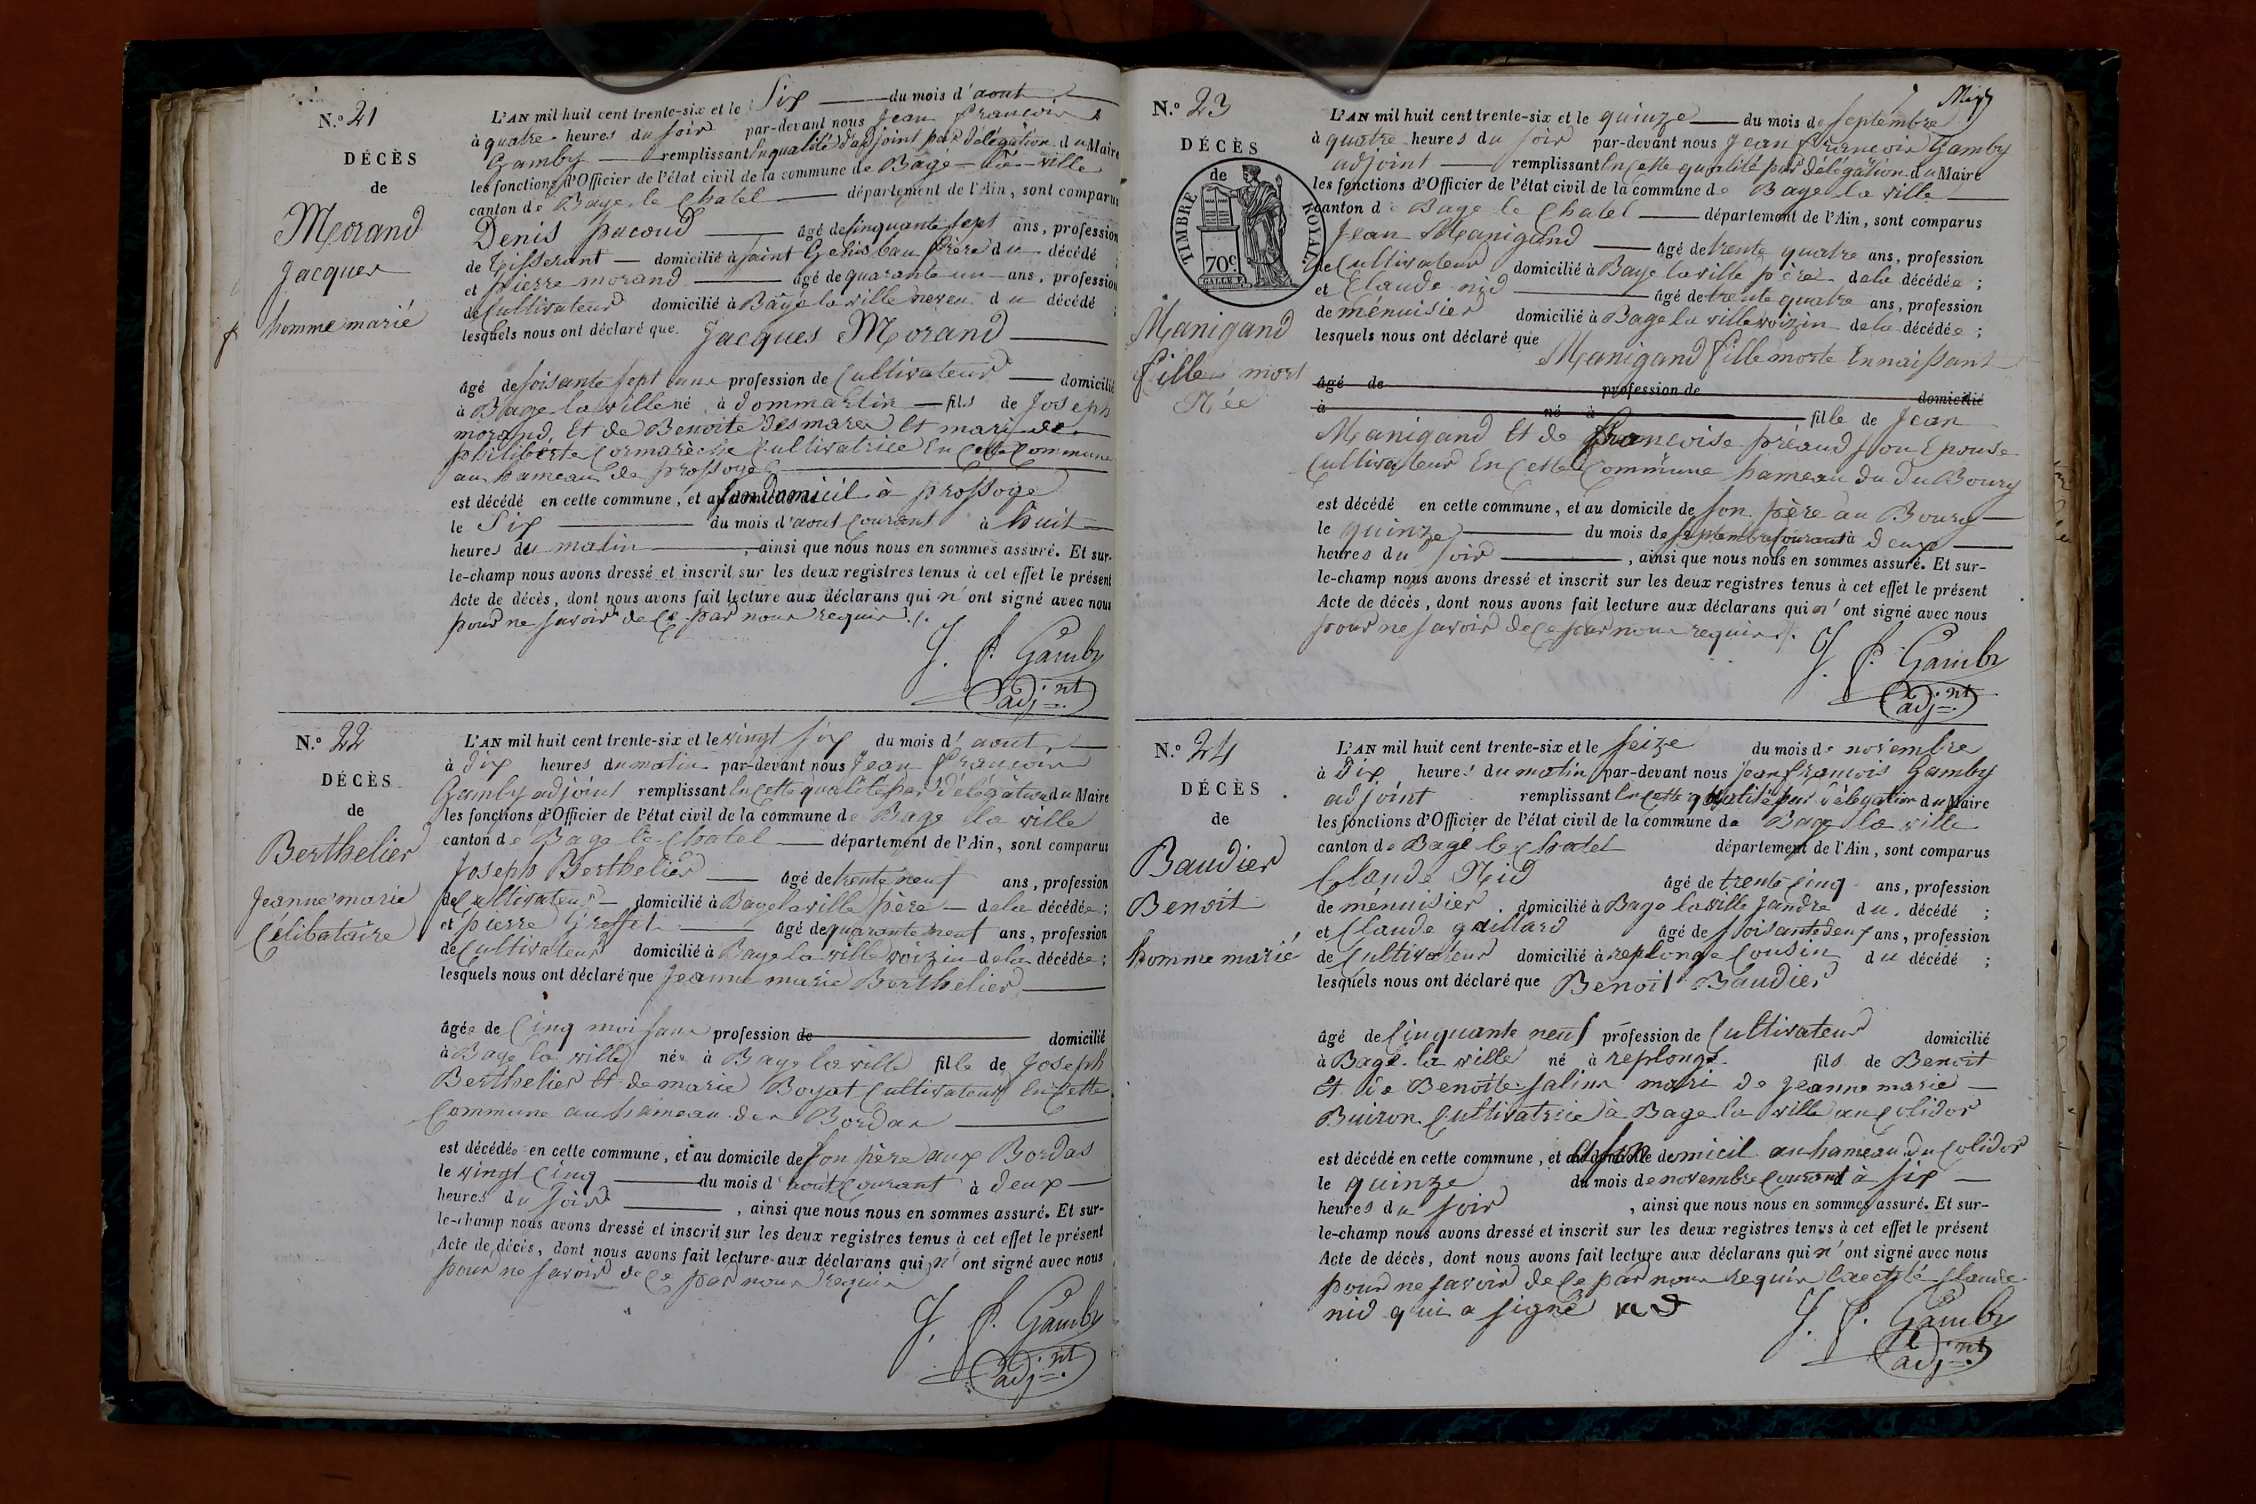 N.o 21
DÉCÈS
de
Morand
Jacques
homme marié
L'AN mil huit cent trente-six et le Six du mois d'aout
à quatre heures du soir par-devant nous Jean françois
Gamby remplissant en qualité d'adjoint par délégation du Maire
les fonctions d'Officier de l'état civil de la commune de Bagé la ville
canton de Bage le Chatel département de l'Ain, sont comparus
Denis pacoud âgé de cinquante sept ans, profession
de Tisserant domicilié à saint Genis beau frère du décédé
et pierre morand âgé de quarante un ans, profession
de Cultivateur domicilié à Bâgé la ville neveu du décédé ;
lesquels nous ont déclaré que Jacques Morand
âgé de soisante sept ans profession de Cultivateur domicilié
à Bage la ville né à dommartin fils de Joseph
morand, Et de Benoite Desmares Et mari de
philiberte Cormarèche Cultivatrice En Cette Commune
au hameau de prossoye
est décédé en cette commune, et au son domicil à prossoye
le Six du mois d'aout Courant à huit
heures du matin, ainsi que nous nous en sommes assuré. Et sur-
le-champ nous avons dressé et inscrit sur les deux registres tenus à cet effet le présent
Acte de décès, dont nous avons fait lecture aux déclarans qui n'ont signé avec nous
pour ne savoir de Ce par nous requis ./.
J. f. Gamby
adj.nt
N.o 22
DÉCÈS
de
Berthelier
Jeanne marie
Célibataire
L'AN mil huit cent trente-six et le vingt six du mois d'aout
à dix heures du matin par-devant nous Jean françois
Gamby adjoint remplissant En Cette qualité par délégation du Maire
les fonctions d'Officier de l'état civil de la commune de Bage la ville
canton de Bage le Chatel département de l'Ain, sont comparus
Joseph Berthelier âgé de trente neuf ans, profession
de Cultivateur domicilié à Bage la ville père de la décédée ;
et pierre Groffet âgé de quarante neuf ans, profession
de Cultivateur domicilié à Bage la ville voizin de la décédée ;
lesquels nous ont déclaré que Jeanne marie Berthelier
âgée de Cinq mois sans profession de domicilié
à Bage la ville née à Bage la ville fille de Joseph
Berthelier Et de marie Boyat Cultivateurs En Cette
Commune au hameau des Bordas
est décédée en cette commune, et au domicile de son père aux Bordas
le vingt Cinq du mois d'aout Courant à deux
heures du soir, ainsi que nous nous en sommes assuré. Et sur-
le-champ nous avons dressé et inscrit sur les deux registres tenus à cet effet le présent
Acte de décès, dont nous avons fait lecture aux déclarans qui n'ont signé avec nous
pour ne savoir de Ce par nous requis
J. f. Gamby
adj.nt
N.o 23
DÉCÈS
de
TIMBRE ROYAL
70c
Manigand
fille mort
Née
L'AN mil huit cent trente-six et le quinze du mois de septembre
à quatre heures du soir par-devant nous Jean françois Gamby
adjoint remplissant En Cette qualité par délégation du Maire
les fonctions d'Officier de l'état civil de la commune de Bage la ville
canton de Bage le Chatel département de l'Ain, sont comparus
Jean Manigand âgé de trente quatre ans, profession
de Cultivateur domicilié à Bage la ville père de la décédée ;
et Claude nid âgé de trente quatre ans, profession
de ménuisier domicilié à Bage la ville voizin de la décédée ;
lesquels nous ont déclaré que Manigand fille morte En naissant
âgé de profession de domicilié
à né à fille de Jean
Manigand Et de françoise préaud son Epouse
Cultivateur En Cette Commune hameau du du Bourg
est décédé en cette commune, et au domicile de son père au Bourg
le quinze du mois de septembre Courant à deux
heures du soir, ainsi que nous nous en sommes assuré. Et sur-
le-champ nous avons dressé et inscrit sur les deux registres tenus à cet effet le présent
Acte de décès, dont nous avons fait lecture aux déclarans qui n'ont signé avec nous
pour ne savoir de Ce par nous requis ./.
J. f. Gamby
adj.nt
N.o 24
DÉCÈS
de
Baudier
Benoit
homme marié
L'AN mil huit cent trente-six et le seize du mois de novembre
à dix heures du matin par-devant nous jean françois Gamby
adjoint remplissant En Cette qualité par délégation du Maire
les fonctions d'Officier de l'état civil de la commune de Bage la ville
canton de Bagé le Chatel département de l'Ain, sont comparus
Claude Nid âgé de trente Cinq ans, profession
de ménuisier domicilié à Bage la ville jandre du décédé ;
et Claude gaillard âgé de soisante deux ans, profession
de Cultivateur domicilié à replonge Cousin du décédé ;
lesquels nous ont déclaré que Benoit Baudier
âgé de Cinquante neuf profession de Cultivateur domicilié
à Bage la ville né à replonge fils de Benoit
et de Benoite salins mari de jeanne marie
Buiron Cultivatrice à Bage la ville au Colidor
est décédé en cette commune, et a son domicil au hameau du Colidor
le quinze du mois de novembre Courant à six
heures du soir, ainsi que nous nous en sommes assuré. Et sur-
le-champ nous avons dressé et inscrit sur les deux registres tenus à cet effet le présent
Acte de décès, dont nous avons fait lecture aux déclarans qui n'ont signé avec nous
pour ne savoir de Ce par nous requis Excepté Claude
nid qui a signé nid
J. f. Gamby
adj.nt